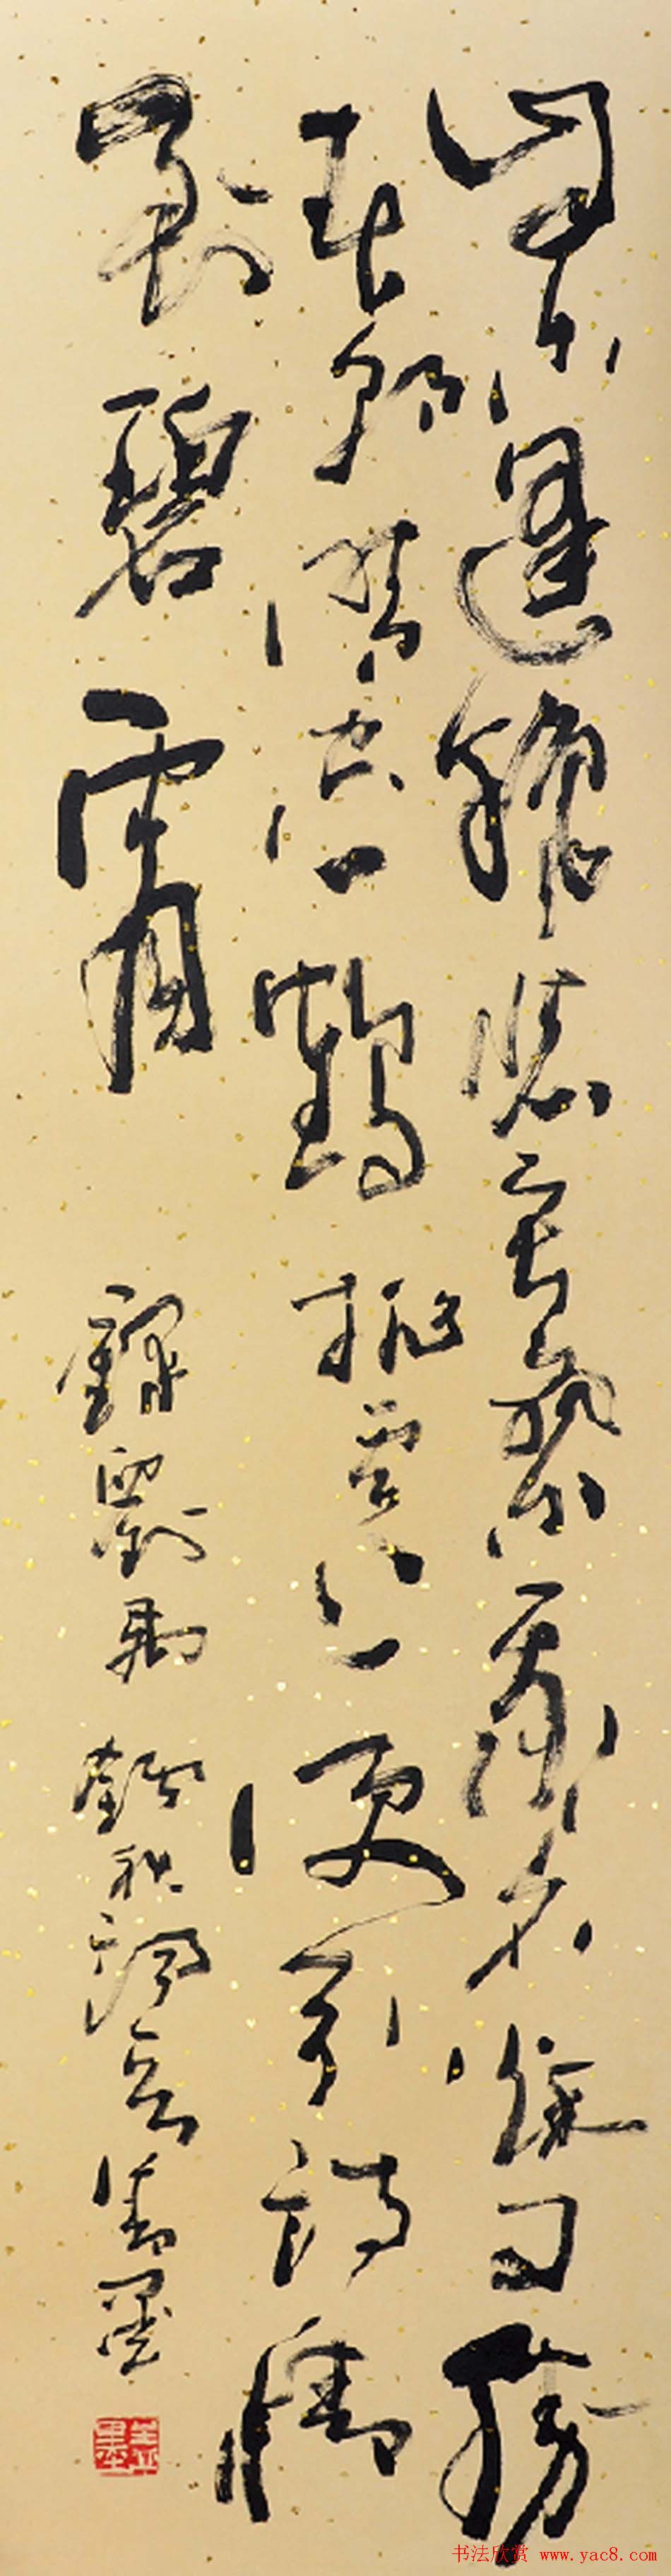 自古逢秋悲寂寥我言秋日勝
春朝晴空一鶴排雲上便引詩情
到碧霄 錄劉禹錫秋詞 墨
书法欣赏 www.yac8.com